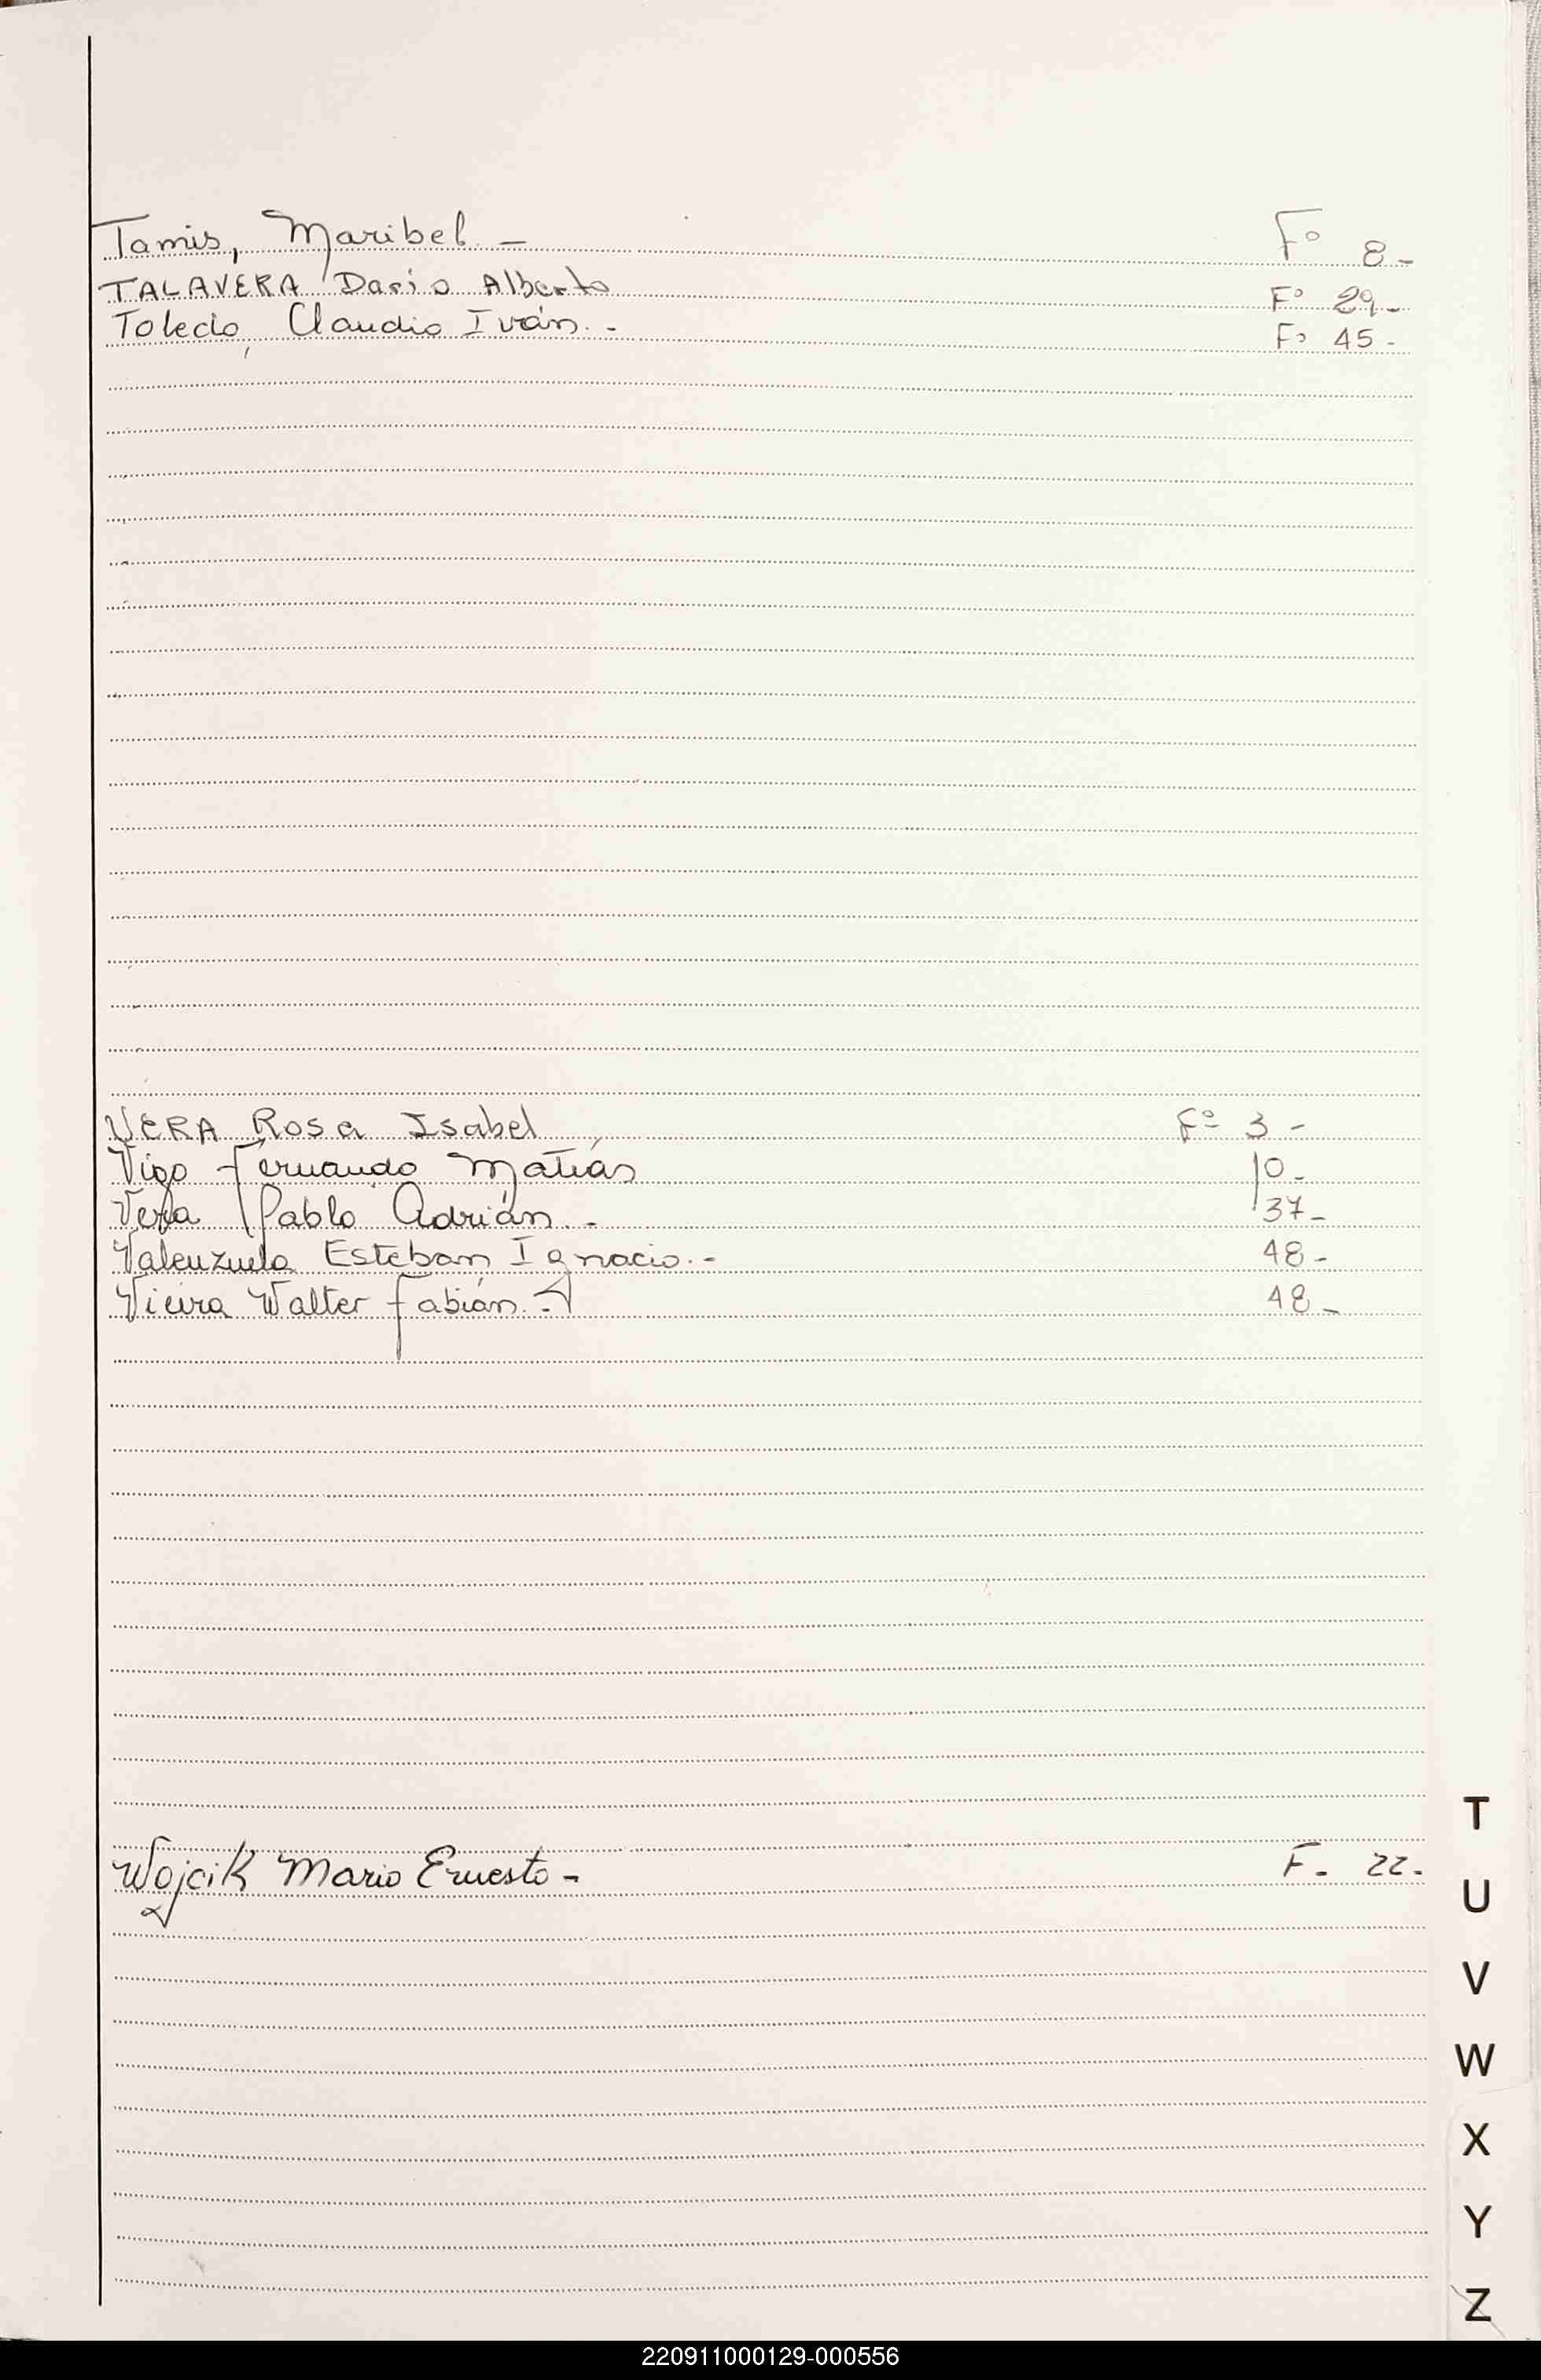 Tamis, Maribel. - Fº 8-
TALAVERA Dario Alberto Fº 29-
Toledo, Claudio Iván. - Fº 45-
VERA Rosa Isabel Fº 3-
Vigo Fernando Matías 10-
Vera Pablo Adrián. - 37-
Valenzuela Esteban Ignacio. - 48-
Vieira Walter Fabián. - 48-
Wojcik Mario Ernesto - F- 22-
T
U
V
W
X
Y
Z
220911000129-000556